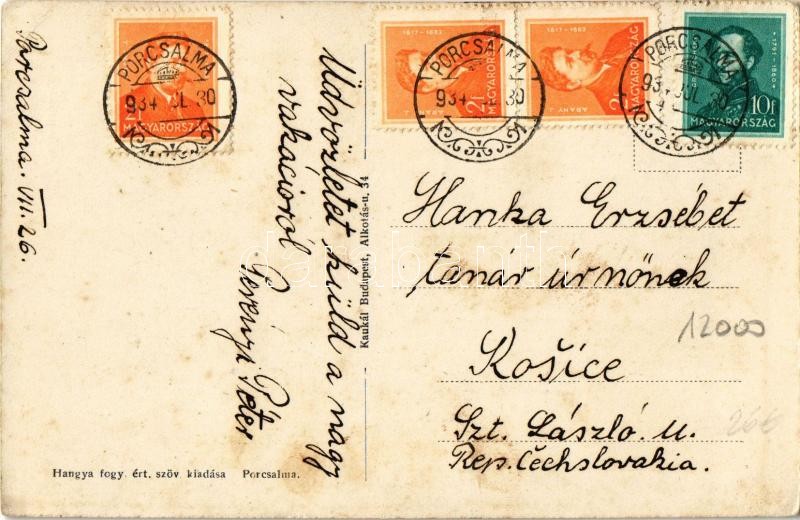 Porcsalma. VII. 26.
PORCSALMA
934 JUL 30
MAGYARORSZÁG
1817-1882
ARANY J.
2f
MAGYARORSZÁG
PORCSALMA
934 30
1817-1882
ARANY J.
2f
MAGYARORSZÁG
PORCSALMA
934 JUL 30
1791-1860
10f
MAGYARORSZÁG
Üdvözletet küld a nagy
vakációról
Gerényi Péter
Kaukál Budapest, Alkotás-u. 34
Hanka Erzsébet
tanár úrnőnek
12000
Košice
266
Szt. László u.
Rep. Čechslovakia.
Hangya fogy. ért. szöv. kiadása Porcsalma.
darabanth